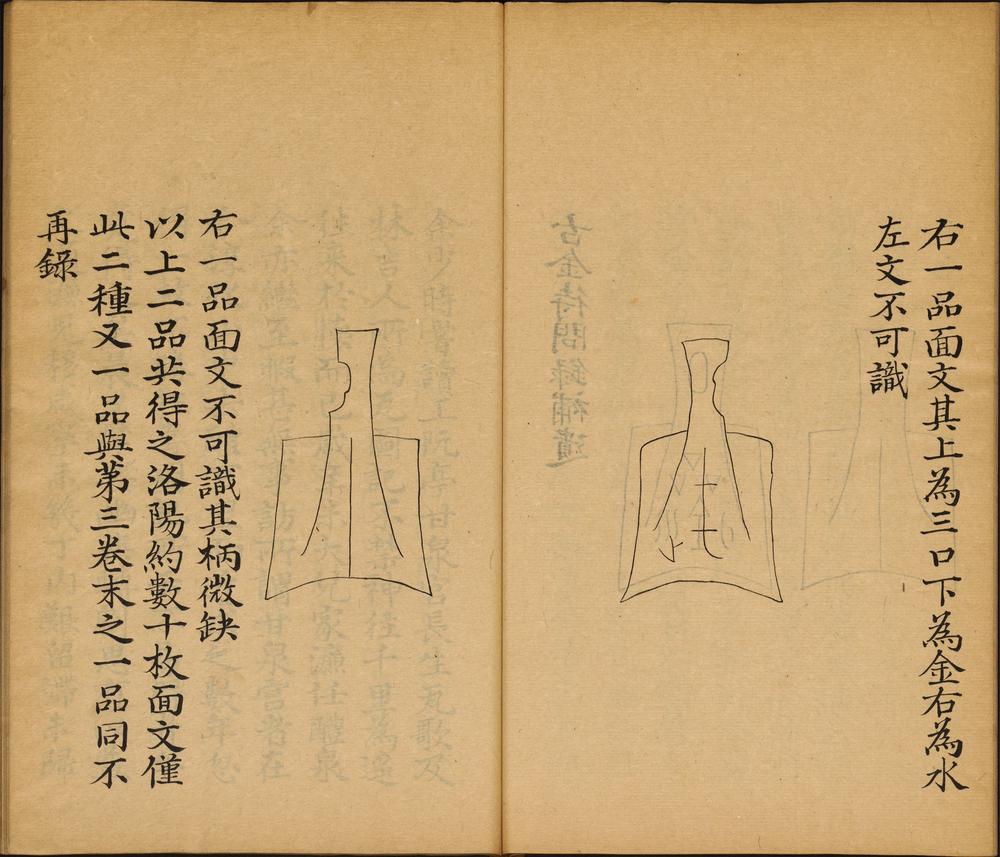 右一品面文其上為三口下為金右為水
左文不可識
右一品面文不可識其柄微缺
以上二品共得之洛陽約數十枚面文僅
此二種又一品與第三卷末之一品同不
再錄